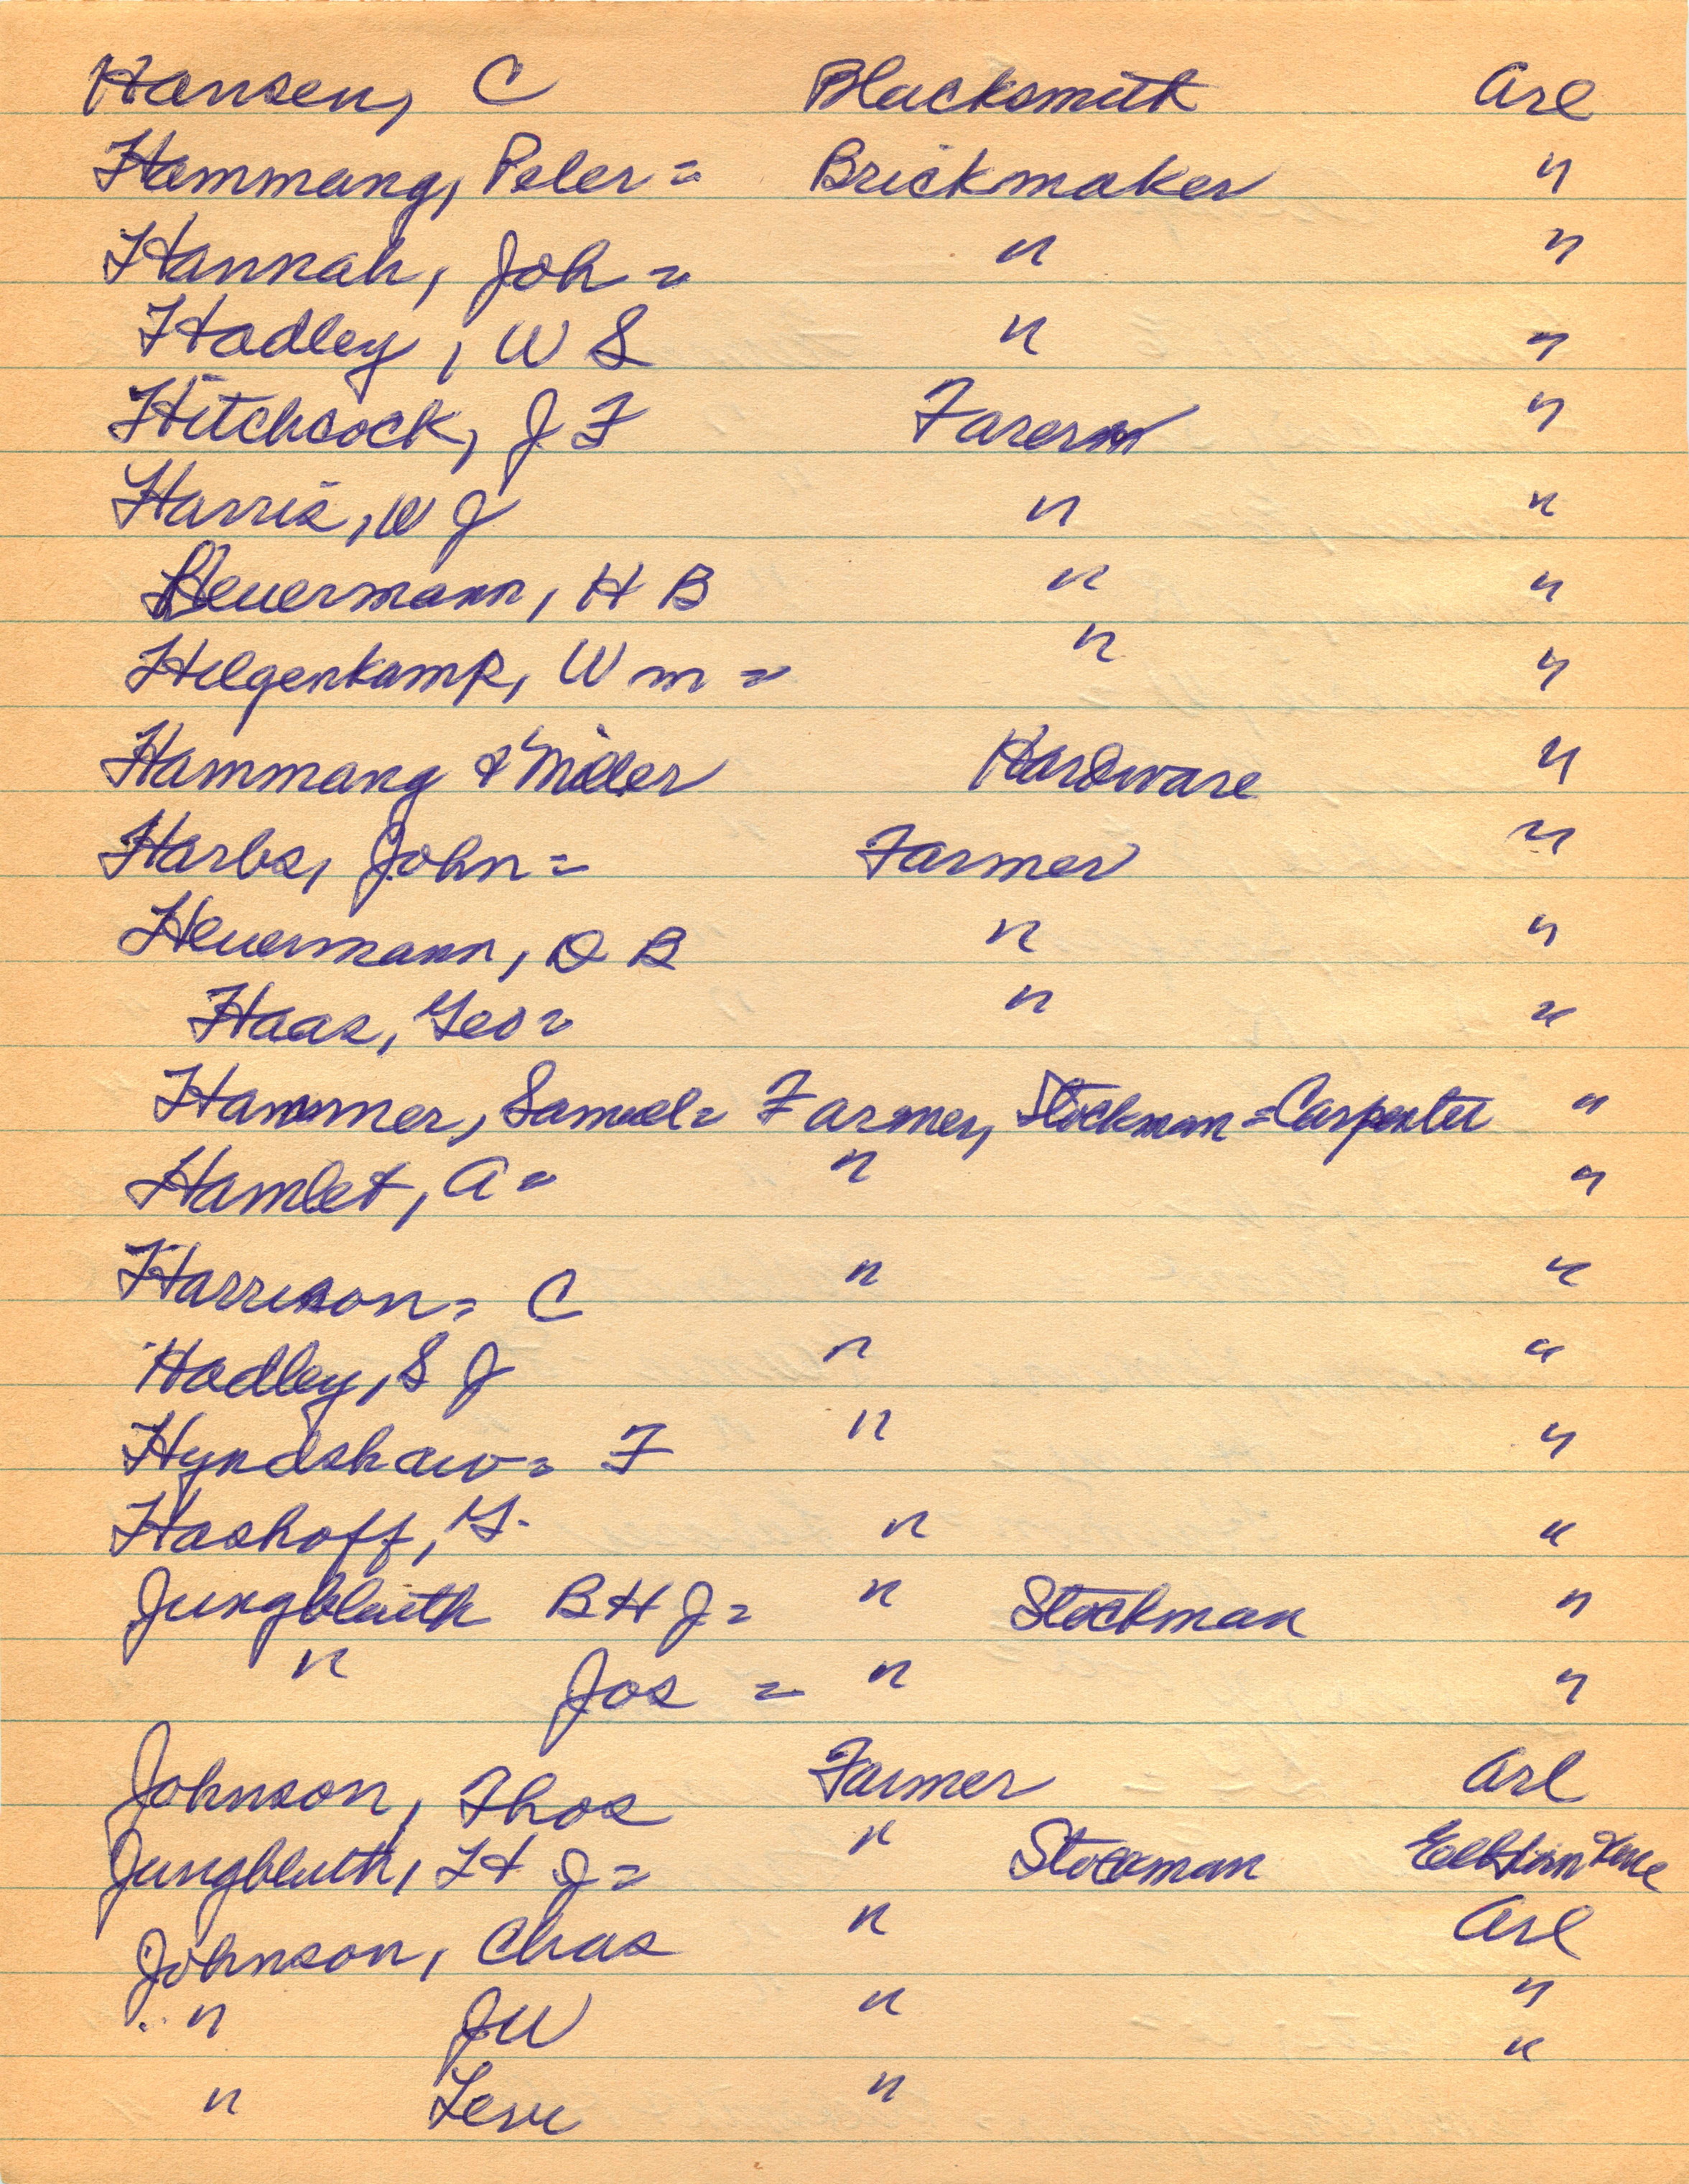 Hansen, C Blacksmith Arl
Hammang, Peter = Brickmaker "
Hannah, Joh = " "
Hadley, W S " "
Hitchcock, J F Farerm "
Harris, W J " "
Heuermann, H B " "
Hilgenkamp, Wm = " "
Hammang & Miller Hardware "
Harbs, John = Farmer "
Heuermann, O B " "
Haas, Geo = " "
Hammer, Samuel = Farmer, Stockman = Carpenter "
Hamlet, A = " "
Harrison = C " "
Hadley, S J " "
Hyndshaw = F " "
Hashoff, G. " "
Jungbluth B H J = " Stockman "
" Jos = " "
Johnson, Thos Farmer Arl
Jungbluth, H J = " Stockman
Johnson, Chas " Arl
" J W " "
" Levi " "